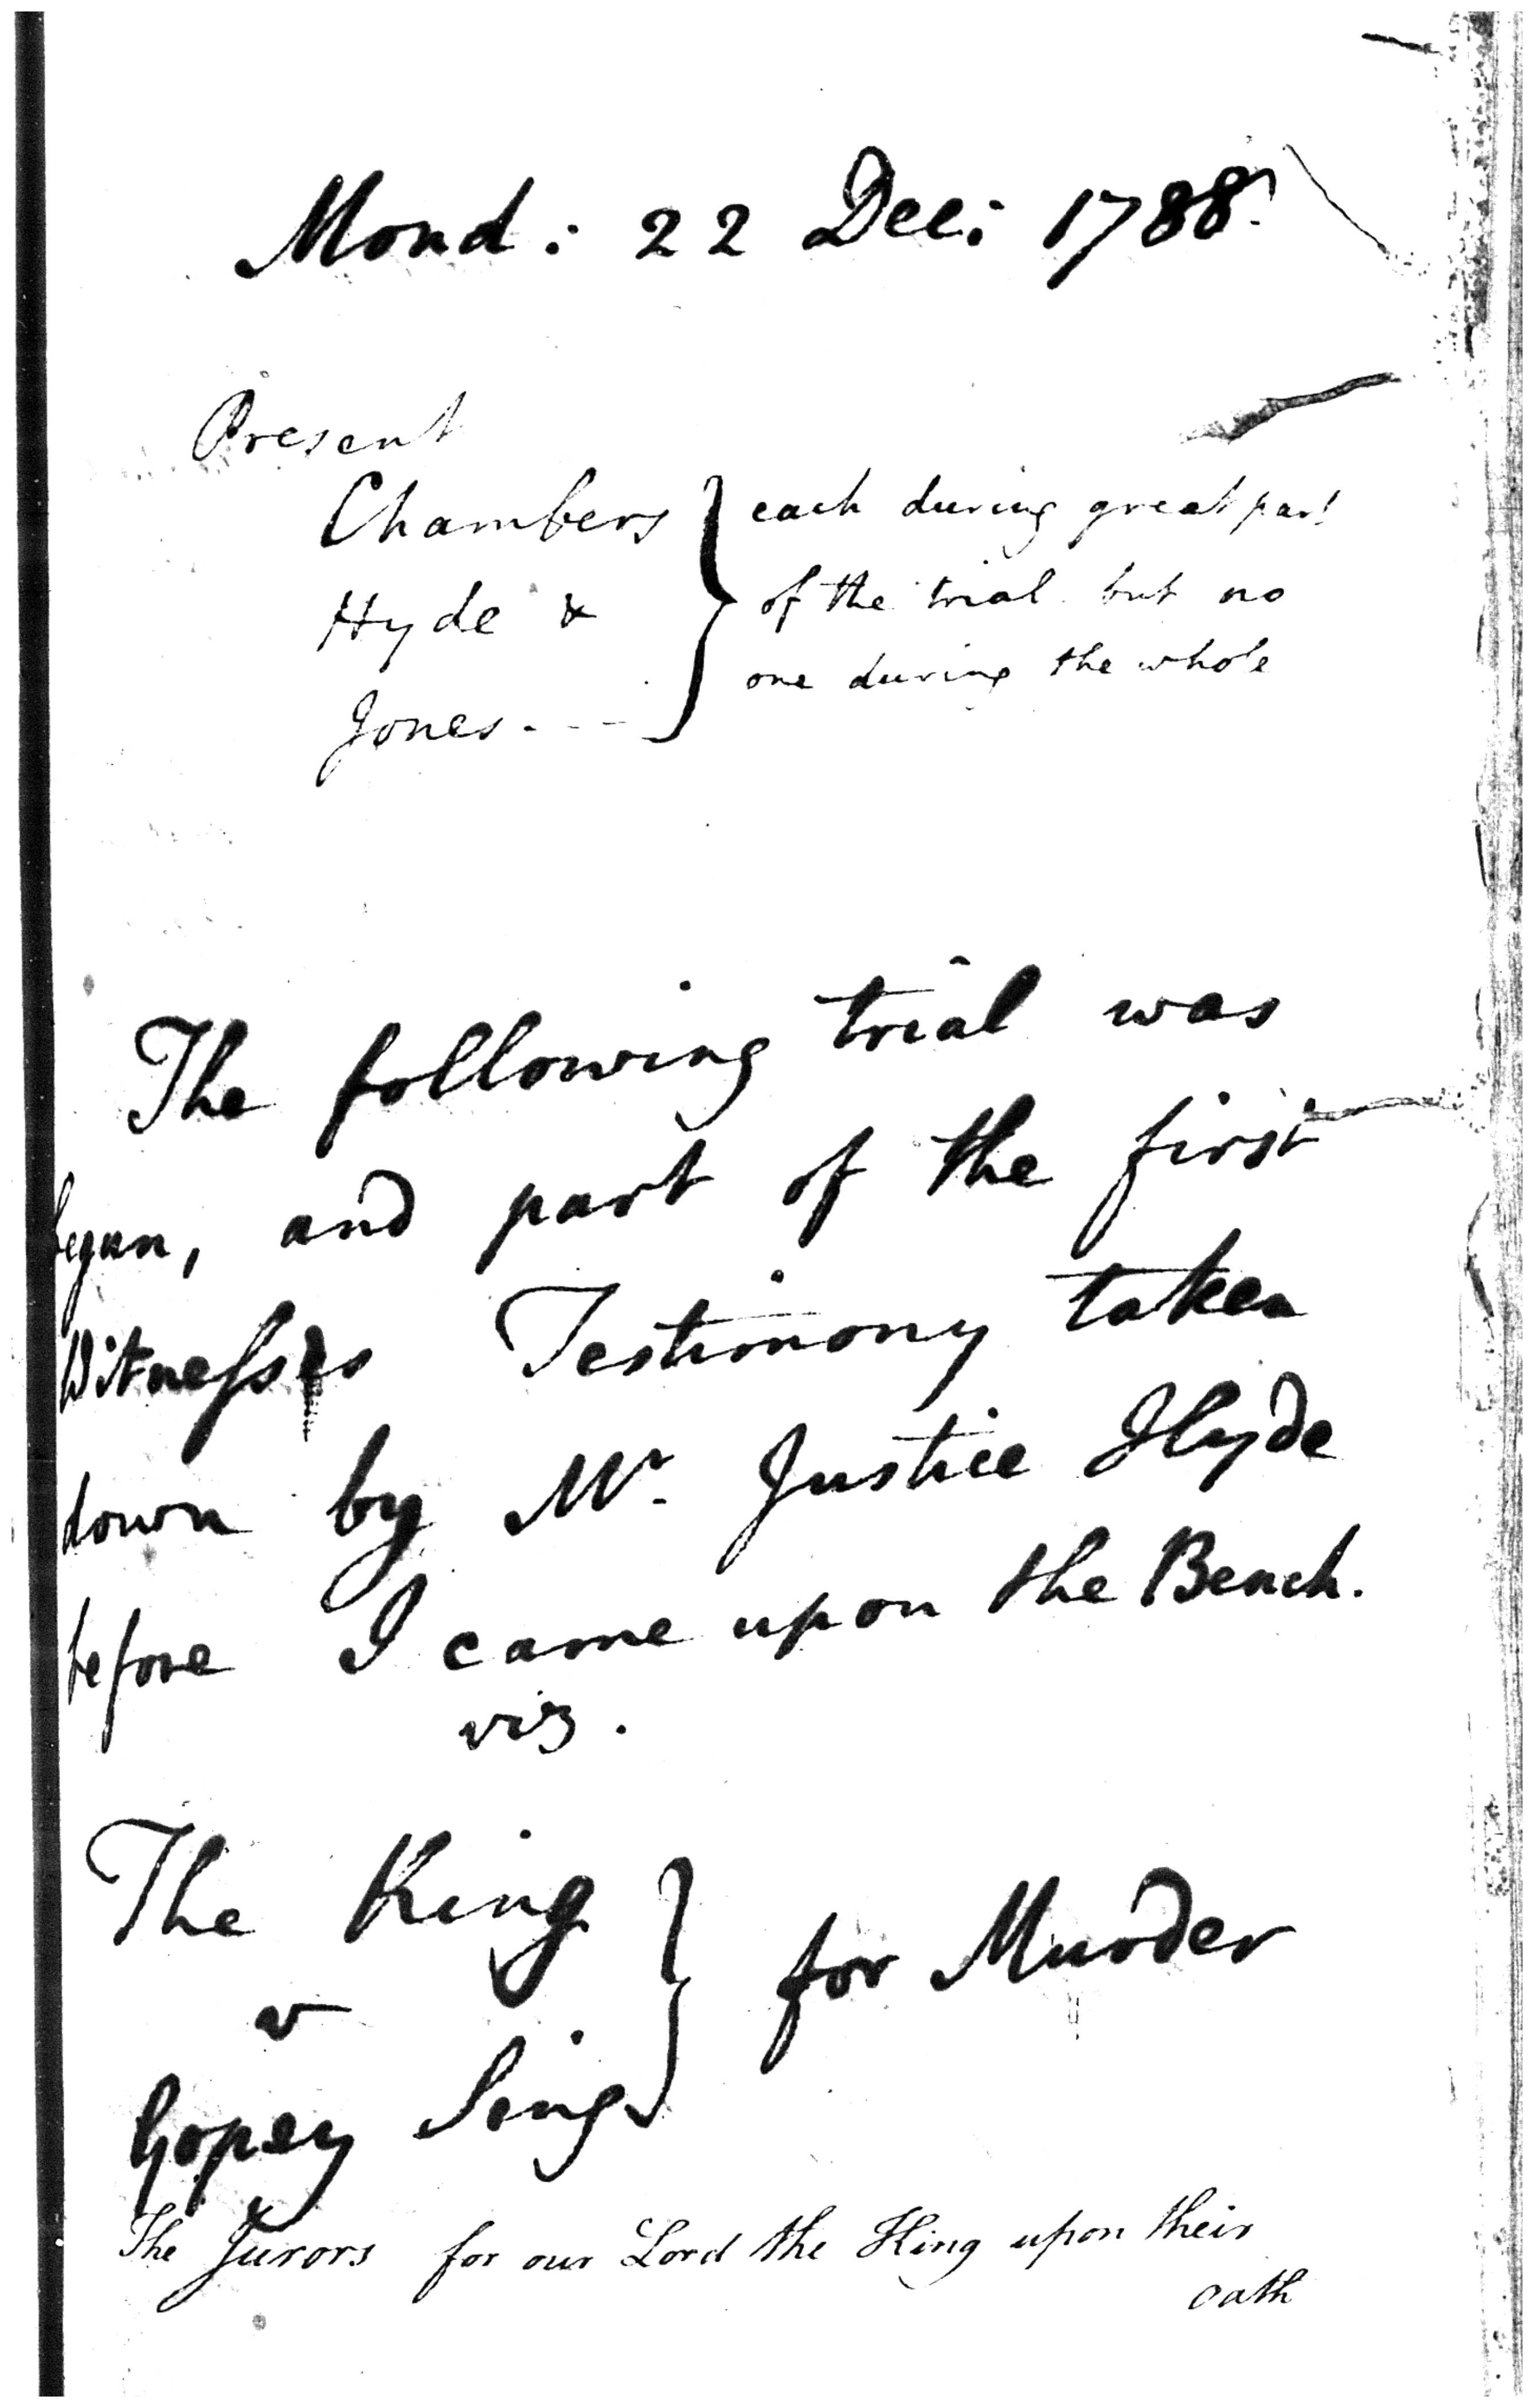 Mond: 22 Dec: 1788.
Present
Chambers } each during great part
Hyde & } of the trial but no
Jones - - - } one during the whole
The following trial was
begun, and part of the first
Witness's Testimony taken
down by Mr. Justice Hyde
before I came upon the Bench.
viz.
The King }
v } for Murder
Gopey Sing }
The Jurors for our Lord the King upon their
oath